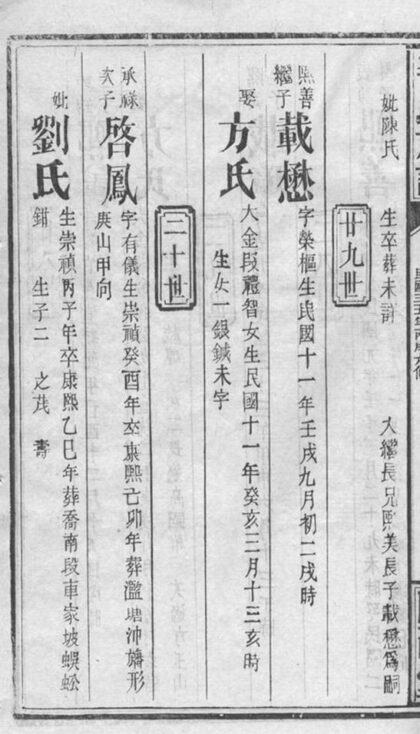 妣陳氏 生卒葬未詳 大繼長兄熙美長子載懋為嗣
廿九世
熙善繼子 載懋 字榮樞生民國十一年壬戌九月初二戌時
娶方氏 大金段禮智女生民國十一年癸亥三月十三亥時
生女一銀鍼未字
三十世
承祿次子 啓鳳 字有儀生崇禎癸酉年卒康熙己卯年葬濫塘沖旛形
庚山甲向
妣劉氏 生崇禎丙子年卒康熙乙巳年葬喬南段車家坡蜈蚣
鉗 生子二 之茂 壽